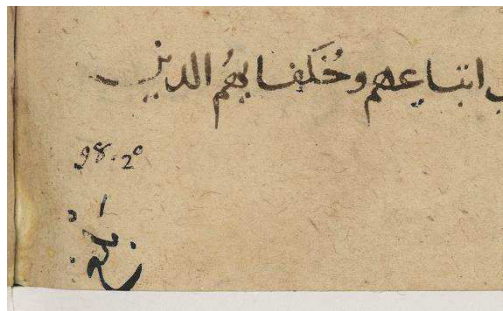 اتباعهم وخُلَفايهُم الدين
98.2°
بلغ